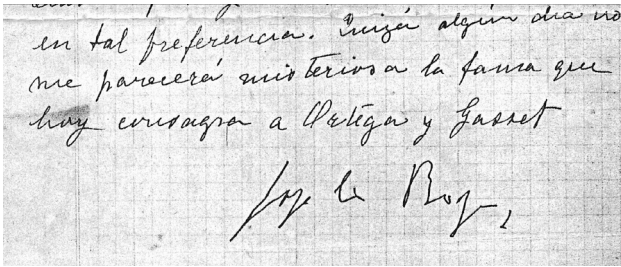 en tal preferencia. Quizá algún dia no
me parecerá misteriosa la fama que
hoy consagra a Ortega y Gasset